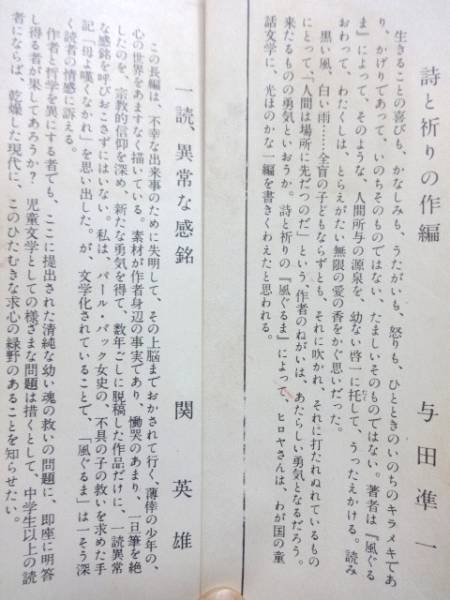 詩と祈りの作編　与田凖一
生きることの喜びも、かなしみも、うたがいも、怒りも、ひとときのいのちのキラメキであ
り、かげりであって、いのちそのものではない。たましいそのものではない。著者は『風ぐる
ま』によって、そのような、人間所与の源泉を、幼ない啓一に托して、うったえかける。読み
おわって、わたくしは、とらえがたい無限の愛の香をかぐ思いだった。
黒い風、白い雨……全盲の子どもならずとも、それに吹かれ、それに打たれぬれているもの
にとって、「人間は場所に先だつのだ」という作者のねがいは、あたらしい勇気となるだろう。
来たるものの勇気といおうか。詩と祈りの『風ぐるま』によって、ヒロヤさんは、わが国の童
話文学に、光ほのかな一編を書きくわえたと思われる。
一読、異常な感銘　関英雄
この長編は、不幸な出来事のために失明して、その上脳までおかされて行く、薄倖の少年の、
心の世界をあますなく描いている。素材が作者身辺の事実であり、慟哭のあまり、一旦筆を絶
したのを、宗教的信仰を深め、新たな勇気を得て、数年ごしに脱稿した作品だけに、一読異常
な感銘を呼びおこさずにはいない。私は、パール・バック女史の、不具の子の救いを求めた手
記「母よ嘆くなかれ」を思い出した。が、文学化されていることで、「風ぐるま」は一そう深
く読者の情感に訴える。
作者と哲学を異にする者でも、ここに提出された清純な幼い魂の救いの問題に、即座に明答
し得る者が果してあろうか？　児童文学としての様ざまな問題は措くとして、中学生以上の読
者にならば、乾燥した現代に、このひたむきな求心の緑野のあることを知らせたい。